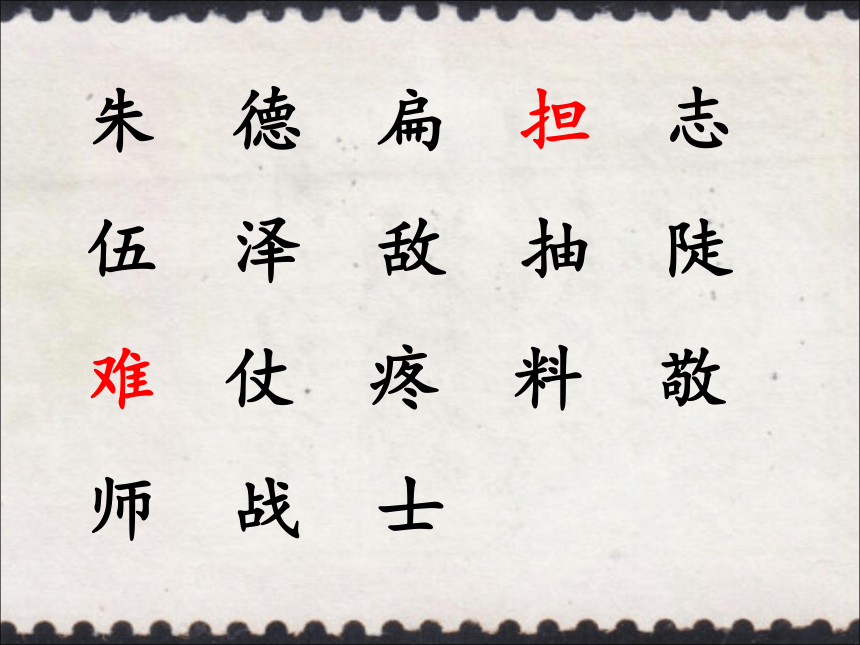 朱 德 扁 担 志
伍 泽 敌 抽 陡
难 仗 疼 料 敬
师 战 士